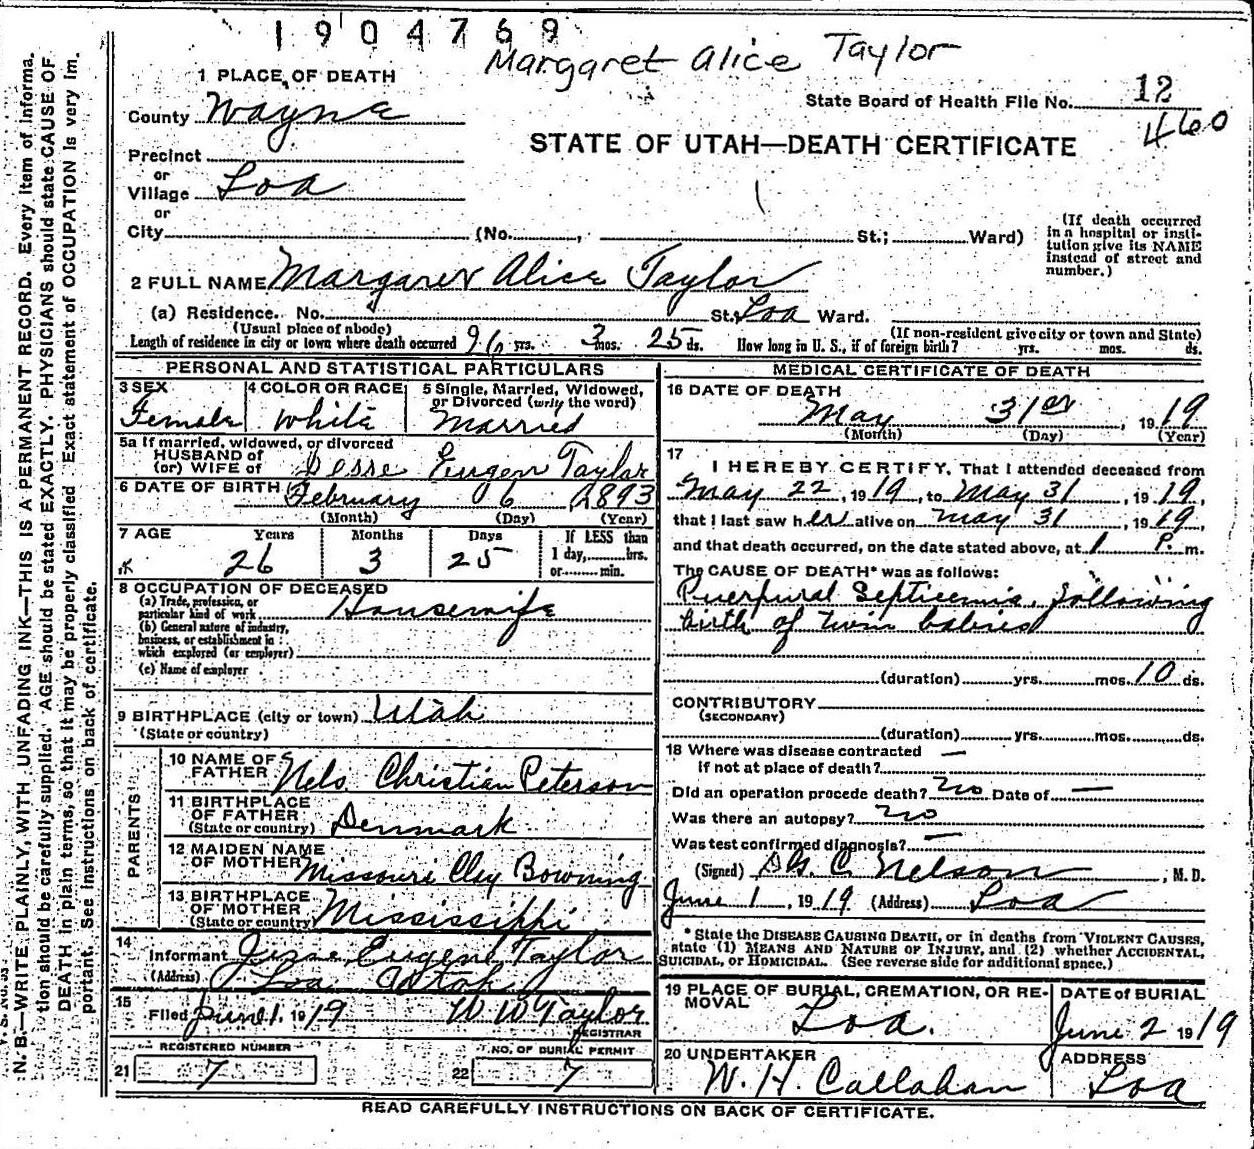 1904769
Margaret Alice Taylor
1 PLACE OF DEATH
County Wayne
State Board of Health File No. 12
460
STATE OF UTAH—DEATH CERTIFICATE
Precinct
or
Village Loa
or
City (No. , St.; Ward)
(If death occurred in a hospital or insti-
tution give its NAME
instead of street and
number.)
2 FULL NAME Margaret Alice Taylor
(a) Residence. No. St. Loa Ward.
(Usual place of abode) (If non-resident give city or town and State)
Length of residence in city or town where death occurred 26 yrs. 3 mos. 25 ds. How long in U. S., if of foreign birth? yrs. mos. ds.
PERSONAL AND STATISTICAL PARTICULARS
3 SEX Female
4 COLOR OR RACE White
5 Single, Married, Widowed,
or Divorced (write the word)
Married
5a If married, widowed, or divorced
HUSBAND of
(or) WIFE of Jesse Eugen Taylor
6 DATE OF BIRTH February 6 1893
(Month) (Day) (Year)
7 AGE Years Months Days If LESS than
1 day, hrs.
or min.
26 3 25
8 OCCUPATION OF DECEASED
(a) Trade, profession, or
particular kind of work Housewife
(b) General nature of industry,
business, or establishment in
which employed (or employer)
(c) Name of employer
9 BIRTHPLACE (city or town) Utah
(State or country)
PARENTS
10 NAME OF
FATHER Nels Christian Peterson
11 BIRTHPLACE
OF FATHER
(State or country) Denmark
12 MAIDEN NAME
OF MOTHER Missouri Clay Bowning
13 BIRTHPLACE
OF MOTHER
(State or country) Mississippi
14
Informant Jesse Eugene Taylor
(Address) Loa Utah
15
Filed June 1, 1919 W W Taylor
REGISTRAR
REGISTERED NUMBER NO. OF BURIAL PERMIT
21 7 22 7
MEDICAL CERTIFICATE OF DEATH
16 DATE OF DEATH
May 31st, 1919
(Month) (Day) (Year)
17
I HEREBY CERTIFY, That I attended deceased from
May 22, 1919, to May 31, 1919,
that I last saw her alive on May 31, 1919,
and that death occurred, on the date stated above, at 1 P. m.
The CAUSE OF DEATH* was as follows:
Puerpural Septicemia, following
birth of twin babies
(duration) yrs. mos. 10 ds.
CONTRIBUTORY
(SECONDARY)
(duration) yrs. mos. ds.
18 Where was disease contracted —
if not at place of death?
Did an operation procede death? no Date of —
Was there an autopsy? no
Was test confirmed diagnosis? —
(Signed) C. Nelson, M. D.
June 1, 1919 (Address) Loa
* State the DISEASE CAUSING DEATH, or in deaths from VIOLENT CAUSES,
state (1) MEANS AND NATURE OF INJURY, and (2) whether ACCIDENTAL,
SUICIDAL, or HOMICIDAL. (See reverse side for additional space.)
19 PLACE OF BURIAL, CREMATION, OR RE-
MOVAL
Loa.
DATE of BURIAL
June 2 1919
20 UNDERTAKER
W. H. Callahan
ADDRESS
Loa
READ CAREFULLY INSTRUCTIONS ON BACK OF CERTIFICATE.
N. B.—WRITE PLAINLY, WITH UNFADING INK—THIS IS A PERMANENT RECORD. Every item of informa-
tion should be carefully supplied. AGE should be stated EXACTLY. PHYSICIANS should state CAUSE OF
DEATH in plain terms, so that it may be properly classified. Exact statement of OCCUPATION is very im-
portant. See instructions on back of certificate.